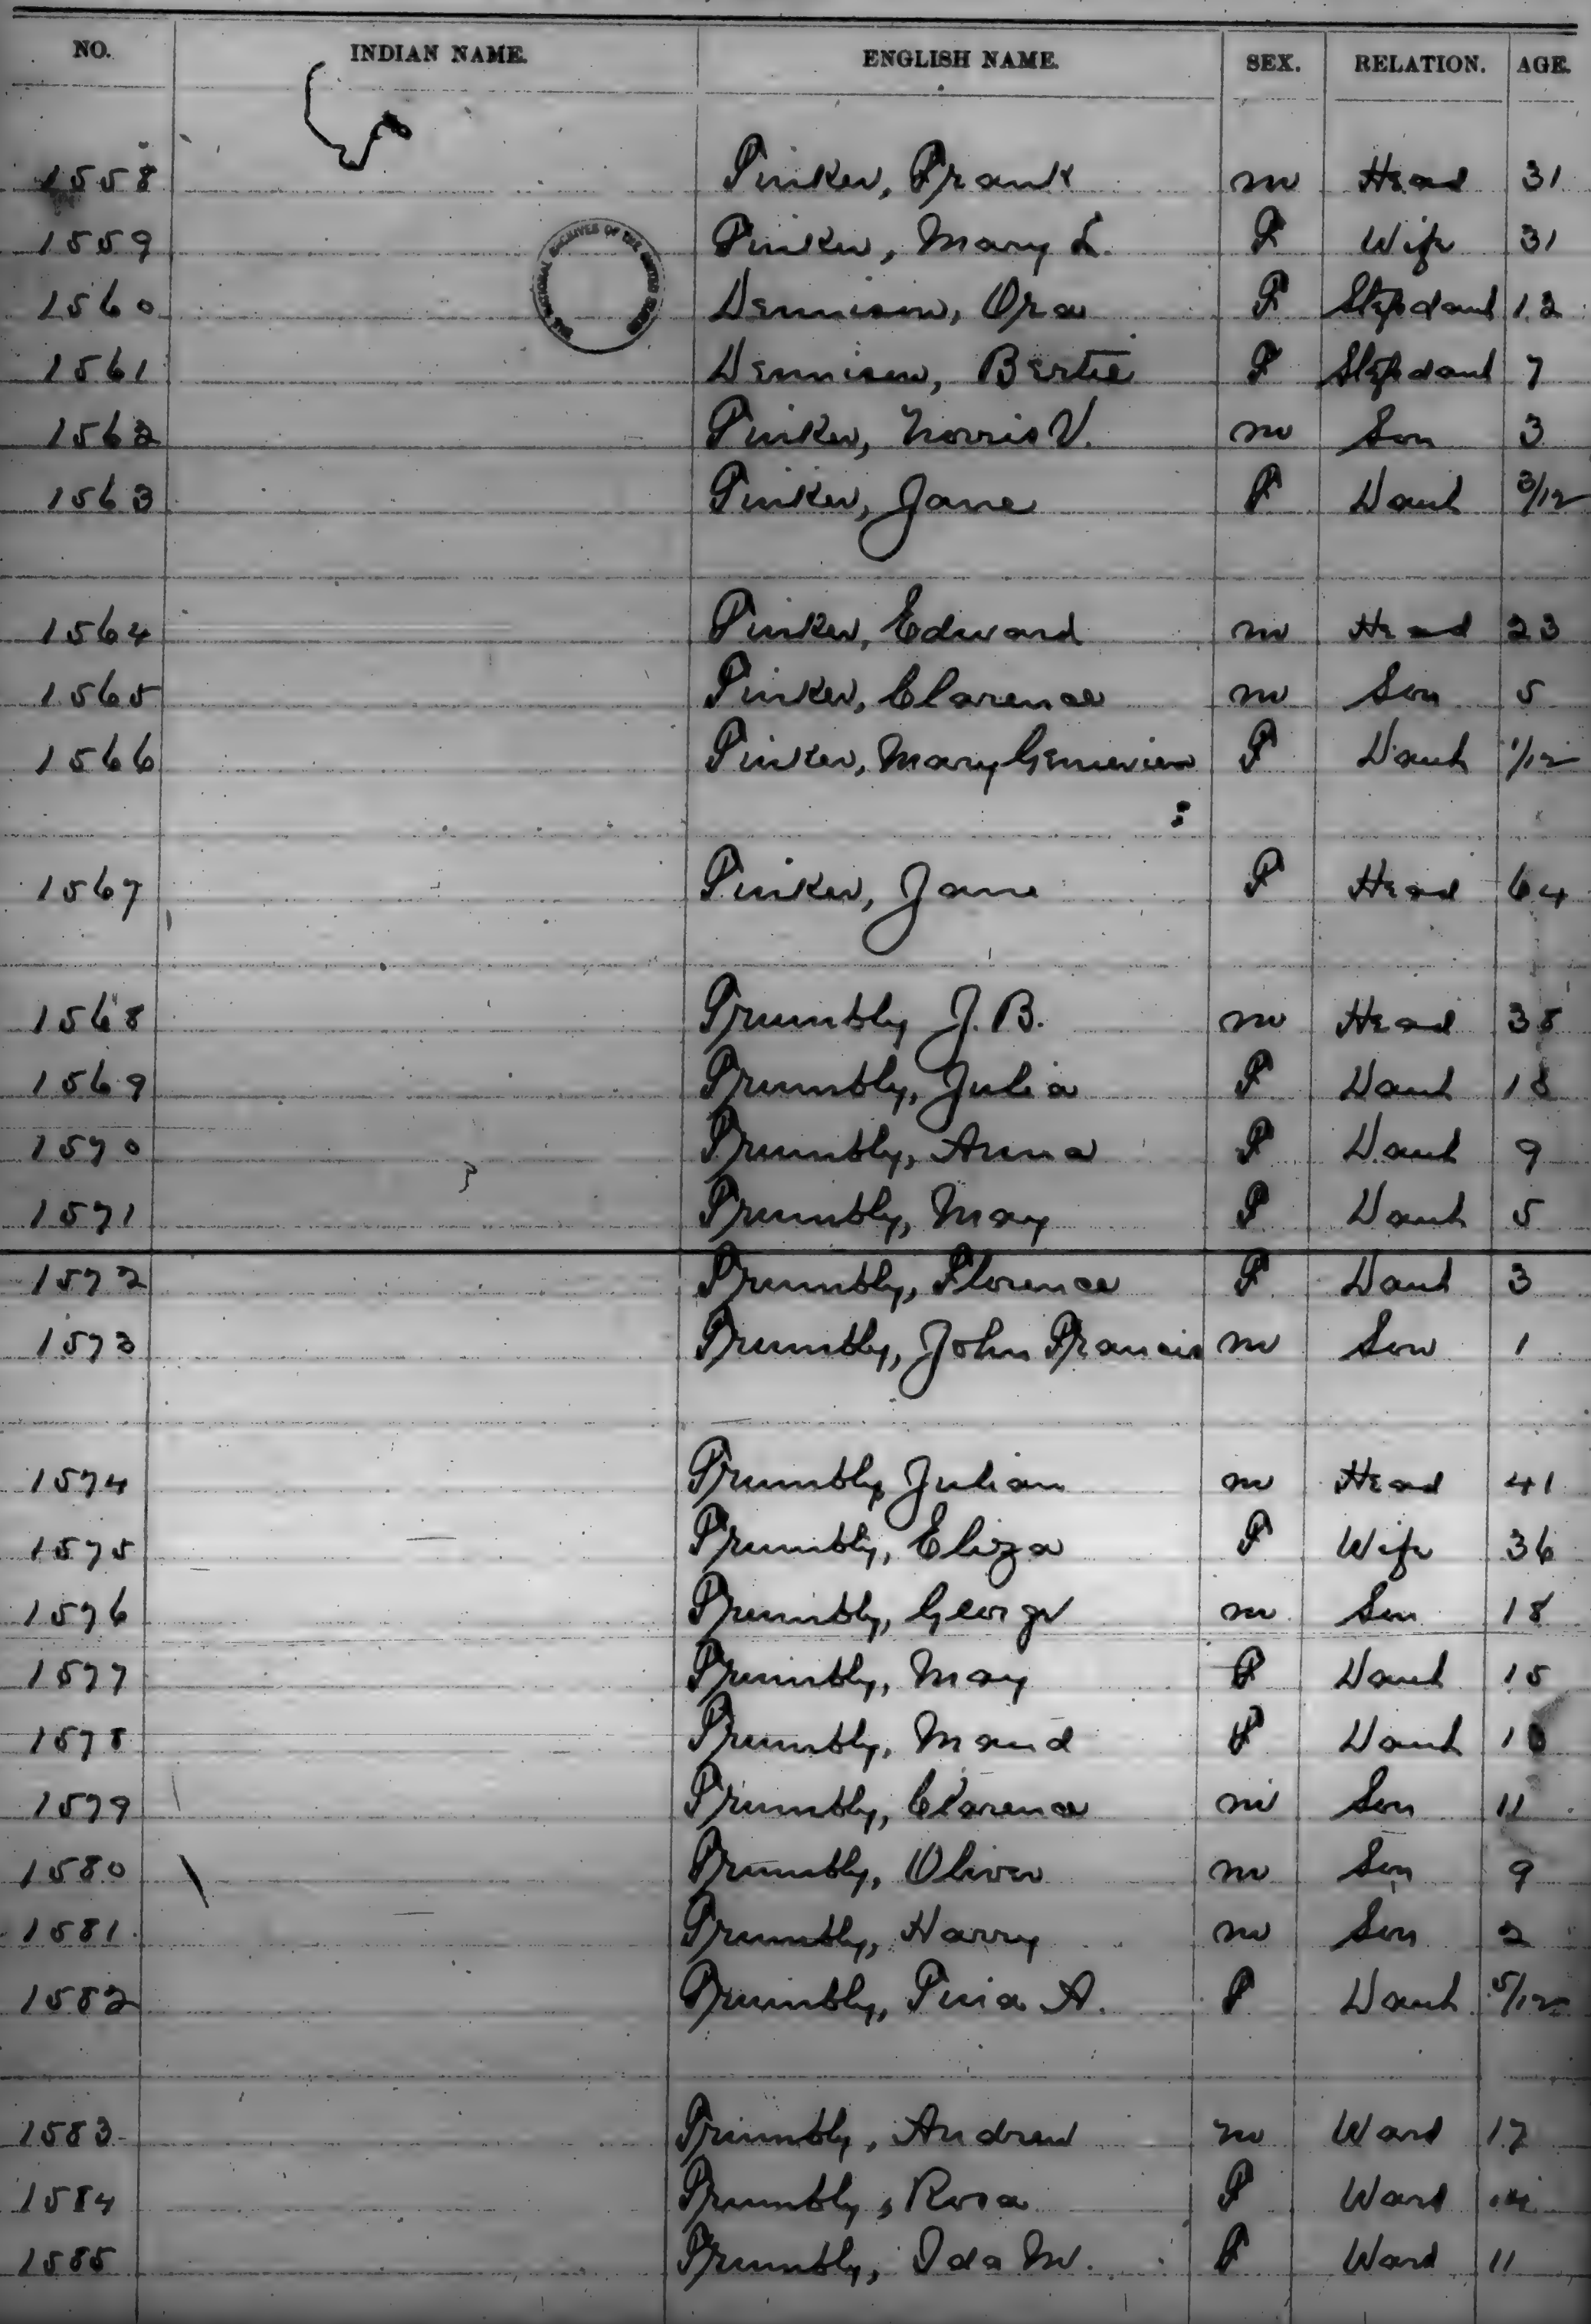 NO. INDIAN NAME. ENGLISH NAME. SEX. RELATION. AGE.
1558 Tinker, Frank m Head 31
1559 Tinker, Mary L. F Wife 31
THE NATIONAL ARCHIVES OF THE UNITED STATES
1560 Dennison, Ora F Stepdaut 12
1561 Dennison, Bertie F Stepdaut 7
1562 Tinker, Norris V. m Son 3
1563 Tinker, Jane F Daut 3/12
1564 Tinker, Edward m Head 23
1565 Tinker, Clarence m Son 5
1566 Tinker, Mary Genevieve F Daut 1/12
1567 Tinker, Jane F Head 64
1568 Trumbly J. B. m Head 38
1569 Trumbly, Julia F Daut
1570 Trumbly, Anna F Daut 9
1571 Trumbly, May F Daut 5
1572 Trumbly, Florence F Daut 3
1573 Trumbly, John Francis m Son 1
1574 Trumbly, Julian m Head 41
1575 Trumbly, Eliza F Wife 36
1576 Trumbly, George m Son 18
1577 Trumbly, May F Daut 15
1578 Trumbly, Maud F Daut
1579 Trumbly, Clarence m Son 11
1580 Trumbly, Oliver m Son 9
1581 Trumbly, Harry m Son 2
1582 Trumbly, Tina A. F Daut 5/12
1583 Trumbly, Andrew m Ward 17
1584 Trumbly, Rosa F Ward
1585 Trumbly, Ida M. F Ward 11